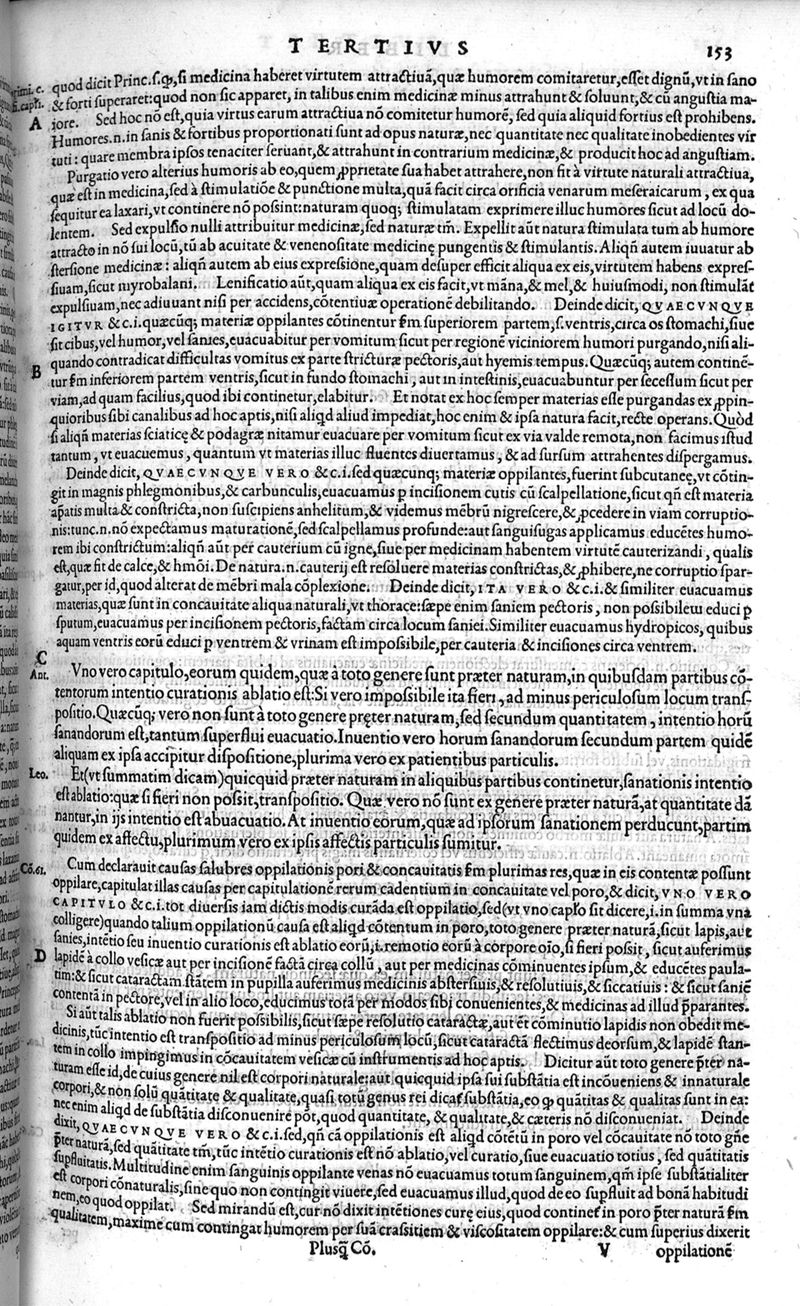 TERTIVS
153
quod dicit Princ.s.ꝙ, si medicina haberet virtutem attractiuã, quæ humorem comitaretur, esset dignũ, vt in sano
& forti superaret: quod non sic apparet, in talibus enim medicinæ minus attrahunt & soluunt, & cũ angustia ma-
A
iore. Sed hoc nõ est, quia virtus earum attractiua nõ comitetur humorẽ, sed quia aliquid fortius est prohibens.
Humores.n.in sanis & fortibus proportionati sunt ad opus naturæ, nec quantitate nec qualitate inobedientes vir
tuti: quare membra ipsos tenaciter seruant, & attrahunt in contrarium medicinæ, & producit hoc ad angustiam.
Purgatio vero alterius humoris ab eo, quem ꝓprietate sua habet attrahere, non fit à virtute naturali attractiua,
quæ est in medicina, sed à stimulatiõe & punctione multa, quã facit circa orificia venarum meseraicarum, ex qua
sequitur ea laxari, vt continere nõ possint: naturam quoq; stimulatam exprimere illuc humores sicut ad locũ do-
lentem. Sed expulsio nulli attribuitur medicinæ, sed naturæ tm̃. Expellit aũt natura stimulata tum ab humore
attracto in nõ sui locũ, tũ ab acuitate & venenositate medicinę pungentis & stimulantis. Aliqñ autem iuuatur ab
stersione medicinæ: aliqñ autem ab eius expressione, quam desuper efficit aliqua ex eis, virtutem habens expres-
siuam, sicut myrobalani. Lenificatio aũt, quam aliqua ex eis facit, vt mãna, & mel, & huiusmodi, non stimulat
expulsiuam, nec adiuuant nisi per accidens, cõtentiuæ operationẽ debilitando. Deinde dicit, QVAECVNQVE
IGITVR & c.i.quæcũq; materiæ oppilantes cõtinentur s̃m superiorem partem, s.ventris, circa os stomachi, siue
sit cibus, vel humor, vel sanies, euacuabitur per vomitum sicut per regionẽ viciniorem humori purgando, nisi ali-
B
quando contradicat difficultas vomitus ex parte stricturæ pectoris, aut hyemis tempus. Quæcũq; autem contine-
tur s̃m inferiorem partem ventris, sicut in fundo stomachi, aut in intestinis, euacuabuntur per secessum sicut per
viam, ad quam facilius, quod ibi continetur, elabitur. Et notat ex hoc semper materias esse purgandas ex ꝓpin-
quioribus sibi canalibus ad hoc aptis, nisi aliqd aliud impediat, hoc enim & ipsa natura facit, recte operans. Quòd
si aliqñ materias sciaticę & podagræ nitamur euacuare per vomitum sicut ex via valde remota, non facimus istud
tantum, vt euacuemus, quantum vt materias illuc fluentes diuertamus, & ad sursum attrahentes dispergamus.
Deinde dicit, QVAECVNQVE VERO & c.i.sed quæcunq; materiæ oppilantes, fuerint subcutaneę, vt cõtin-
git in magnis phlegmonibus, & carbunculis, euacuamus p incisionem cutis cũ scalpellatione, sicut qñ est materia
ap̃atis multa & constricta, non suscipiens anhelitum, & videmus mẽbrũ nigrescere, & ꝓcedere in viam corruptio-
nis: tunc.n.nõ expectamus maturationẽ, sed scalpellamus profunde: aut sanguisugas applicamus educẽtes humo-
rem ibi constrictum: aliqñ aũt per cauterium cũ igne, siue per medicinam habentem virtutẽ cauterizandi, qualis
est, quæ fit de calce, & hmõi. De natura.n.cauterij est resoluere materias constrictas, & ꝓhibere, ne corruptio spar-
gatur, per id, quod alterat de mẽbri mala cõplexione. Deinde dicit, ITA VERO & c.i.& similiter euacuamus
materias, quæ sunt in concauitate aliqua naturali, vt thorace: sæpe enim saniem pectoris, non possibilem educi p
sputum, euacuamus per incisionem pectoris, factam circa locum saniei. Similiter euacuamus hydropicos, quibus
aquam ventris eorũ educi p ventrem & vrinam est impossibile, per cauteria & incisiones circa ventrem.
C
Ant.
Vno vero capitulo, eorum quidem, quæ à toto genere sunt præter naturam, in quibusdam partibus cõ-
tentorum intentio curationis ablatio est: Si vero impossibile ita fieri, ad minus periculosum locum trans-
positio. Quæcũq; vero non sunt à toto genere pręter naturam, sed secundum quantitatem, intentio horũ
sanandorum est, tantum superflui euacuatio. Inuentio vero horum sanandorum secundum partem quidẽ
aliquam ex ipsa accipitur dispositione, plurima vero ex patientibus particulis.
Leo.
Et (vt summatim dicam) quicquid præter naturam in aliquibus partibus continetur, sanationis intentio
est ablatio: quæ si fieri non possit, transpositio. Quæ vero nõ sunt ex genere præter naturã, at quantitate dã
nantur, in ijs intentio est abuacuatio. At inuentio eorum, quæ ad ipsorum sanationem perducunt, partim
quidem ex affectu, plurimum vero ex ipsis affectis particulis sumitur.
Cõ.61.
Cum declarauit causas salubres oppilationis pori & concauitatis s̃m plurimas res, quæ in eis contentæ possunt
oppilare, capitulat illas causas per capitulationẽ rerum cadentium in concauitate vel poro, & dicit, VNO VERO
CAPITVLO & c.i.tot diuersis iam dictis modis curãda est oppilatio, sed (vt vno caplo sit dicere, i. in summa vna
colligere) quando talium oppilationũ causa est aliqd cõtentum in poro, toto genere præter naturã, sicut lapis, aut
sanies, intẽtio seu inuentio curationis est ablatio eorũ, i. remotio eorũ à corpore oĩo, si fieri possit, sicut auferimus
D
lapidẽ à collo vesicæ aut per incisionẽ factã circa collũ, aut per medicinas cõminuentes ipsum, & educẽtes paula-
tim: & sicut cataractam stãtem in pupilla auferimus medicinis abstersiuis, & resolutiuis, & siccatiuis: & sicut saniẽ
contentã in pectore, vel in alio loco, educimus totã per modos sibi conuenientes, & medicinas ad illud p̃parantes.
Si aũt talis ablatio non fuerit possibilis, sicut sæpe resolutio cataractæ, aut ẽt cõminutio lapidis non obedit me-
dicinis, tũc intentio est transpositio ad minus periculosum locũ, sicut cataractã flectimus deorsum, & lapidẽ stan-
tem in collo impingimus in cõcauitatem vesicæ cũ instrumentis ad hoc aptis. Dicitur aũt toto genere p̃ter na-
turam esse id, de cuius genere nil est corpori naturale: aut quicquid ipsa sui substãtia est incõueniens & innaturale
corpori, & non solũ quãtitate & qualitate, quasi totũ genus rei dicat̃ substãtia, eo ꝙ quãtitas & qualitas sunt in ea:
nec enim aliqd de substãtia disconuenire põt, quod quantitate, & qualitate, & cæteris nõ disconueniat. Deinde
dixit, QVAECVNQVE VERO & c.i.sed, qñ cã oppilationis est aliqd cõtẽtũ in poro vel cõcauitate nõ toto gñe
p̃ter naturã, sed quãtitate tm̃, tũc intẽtio curationis est nõ ablatio, vel curatio, siue euacuatio totius, sed quãtitatis
supfluitatis. Multitudine enim sanguinis oppilante venas nõ euacuamus totum sanguinem, qm̃ ipse substãtialiter
est corpori cõnaturalis, sine quo non contingit viuere, sed euacuamus illud, quod de eo supfluit ad bonã habitudi
nem, eo quod oppilat. Sed mirandũ est, cur nõ dixit intẽtiones curę eius, quod continet̃ in poro p̃ter naturã s̃m
qualitatem, maxime cum contingat humorem per suã crassitiem & viscositatem oppilare: & cum superius dixerit
Plusq̃ Cõ.
V
oppilationẽ